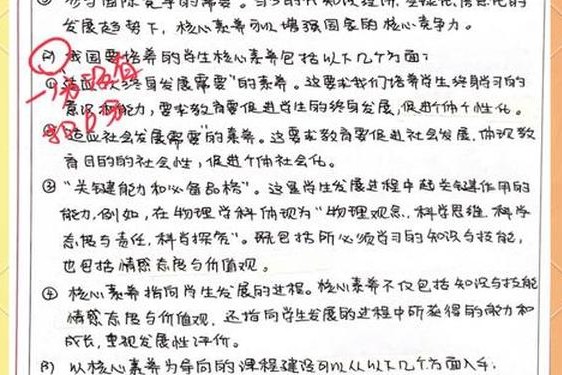 ③ 参与国际竞争的需要。当今时代知识经济、全球化、信息化的
发展趋势下，核心素养可以增强国家的核心竞争力。
(2) 我国要培养的学生核心素养包括以下几个方面：
① "适应人终身发展需要"的素养。这要求我们培养学生终身学习的
意识和能力，要求教育要促进学生的终身发展，促进个体个性化。
一分没有
写0分
② "适应社会发展需要"的素养。这要求教育要促进社会发展，体现教
育目的的社会性，促进个体社会化。
③ "关键能力和必备品格"。这是学生发展进程中起关键作用的
能力，例如，在物理学科体现为"物理观念、科学思维、科学
态度与责任、科学探究"。既包括所必须学习的知识与技能，
也包括情感态度与价值观。
④ 核心素养指向学生发展的过程。核心素养不仅包括知识与技能
情感态度与价值观，还指向学生发展的过程中所获得的能力和
成长，重视发展性评价。
(3) 以核心素养为导向的课程建设可以从以下几个方面入手：